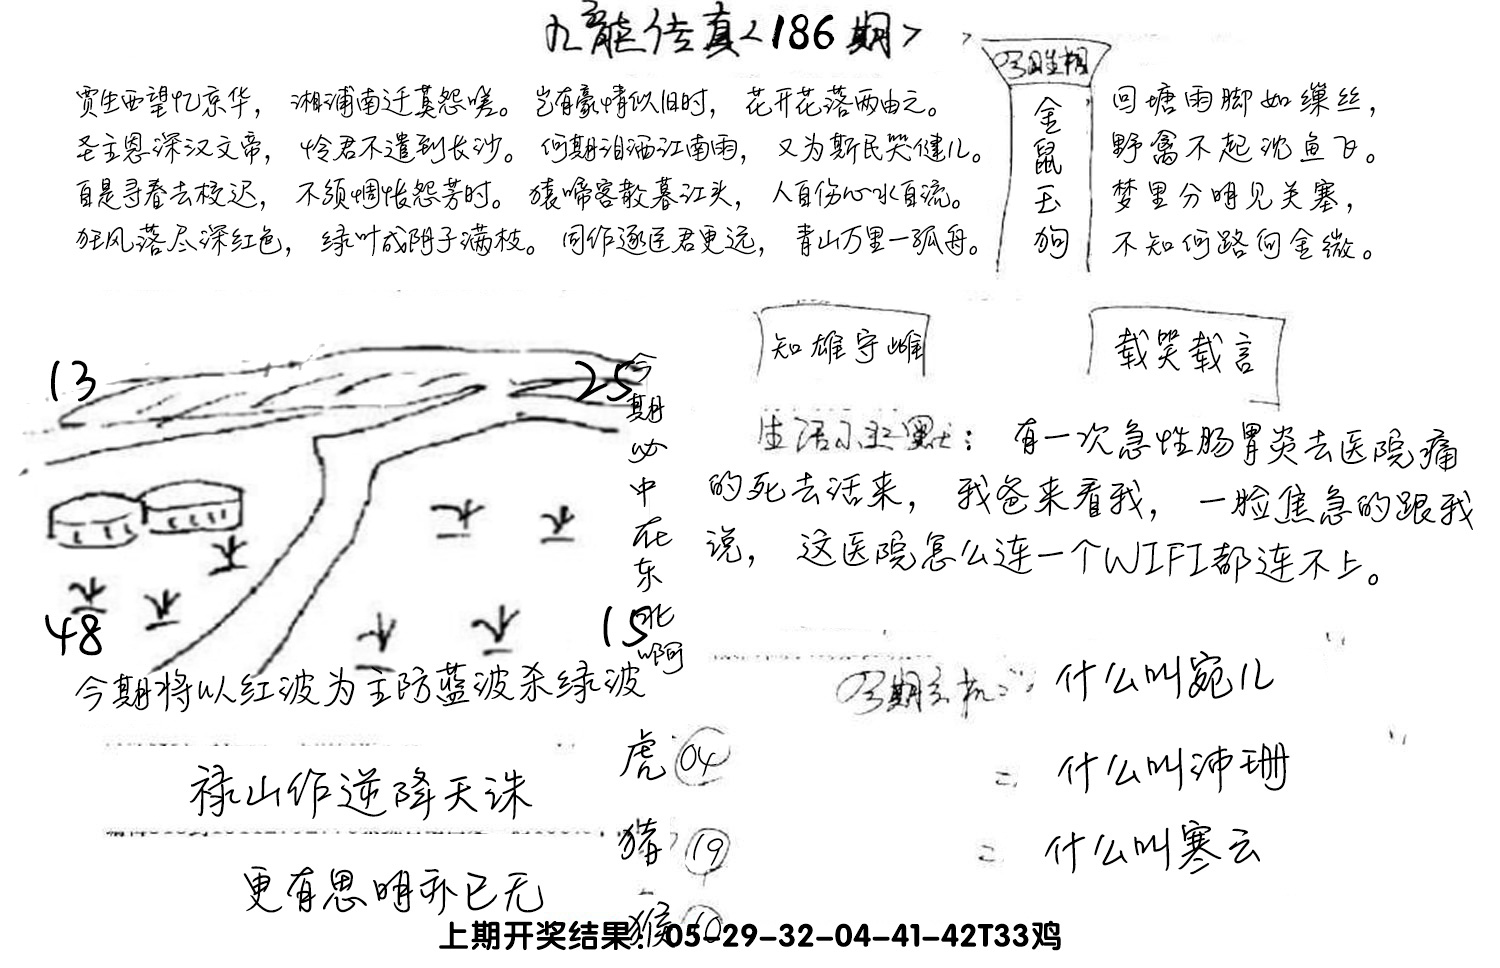 九龙传真<186期>
贾生西望忆京华，湘浦南迁莫怨嗟。岂有豪情似旧时，花开花落两由之。
圣主恩深汉文帝，怜君不遣到长沙。何期泪洒江南雨，又为斯民哭健儿。
自是寻春去校迟，不须惆怅怨芳时。猿啼客散暮江头，人自伤心水自流。
狂风落尽深红色，绿叶成阴子满枝。同作逐臣君更远，青山万里一孤舟。
金鼠玉狗
回塘雨脚如缫丝，
野禽不起沈鱼飞。
梦里分明见关塞，
不知何路向金微。
知雄守雌
载笑载言
13
25
48
15
今期必中在东北啊
今期将以红波为主防蓝波杀绿波
生活小幽默：有一次急性肠胃炎去医院痛
的死去活来，我爸来看我，一脸焦急的跟我
说，这医院怎么连一个WIFI都连不上。
禄山作逆降天诛
更有思明亦已无
虎 04
猪 19
猴 10
今期玄机：什么叫宛儿
= 什么叫沛珊
= 什么叫寒云
上期开奖结果：05-29-32-04-41-42T33鸡